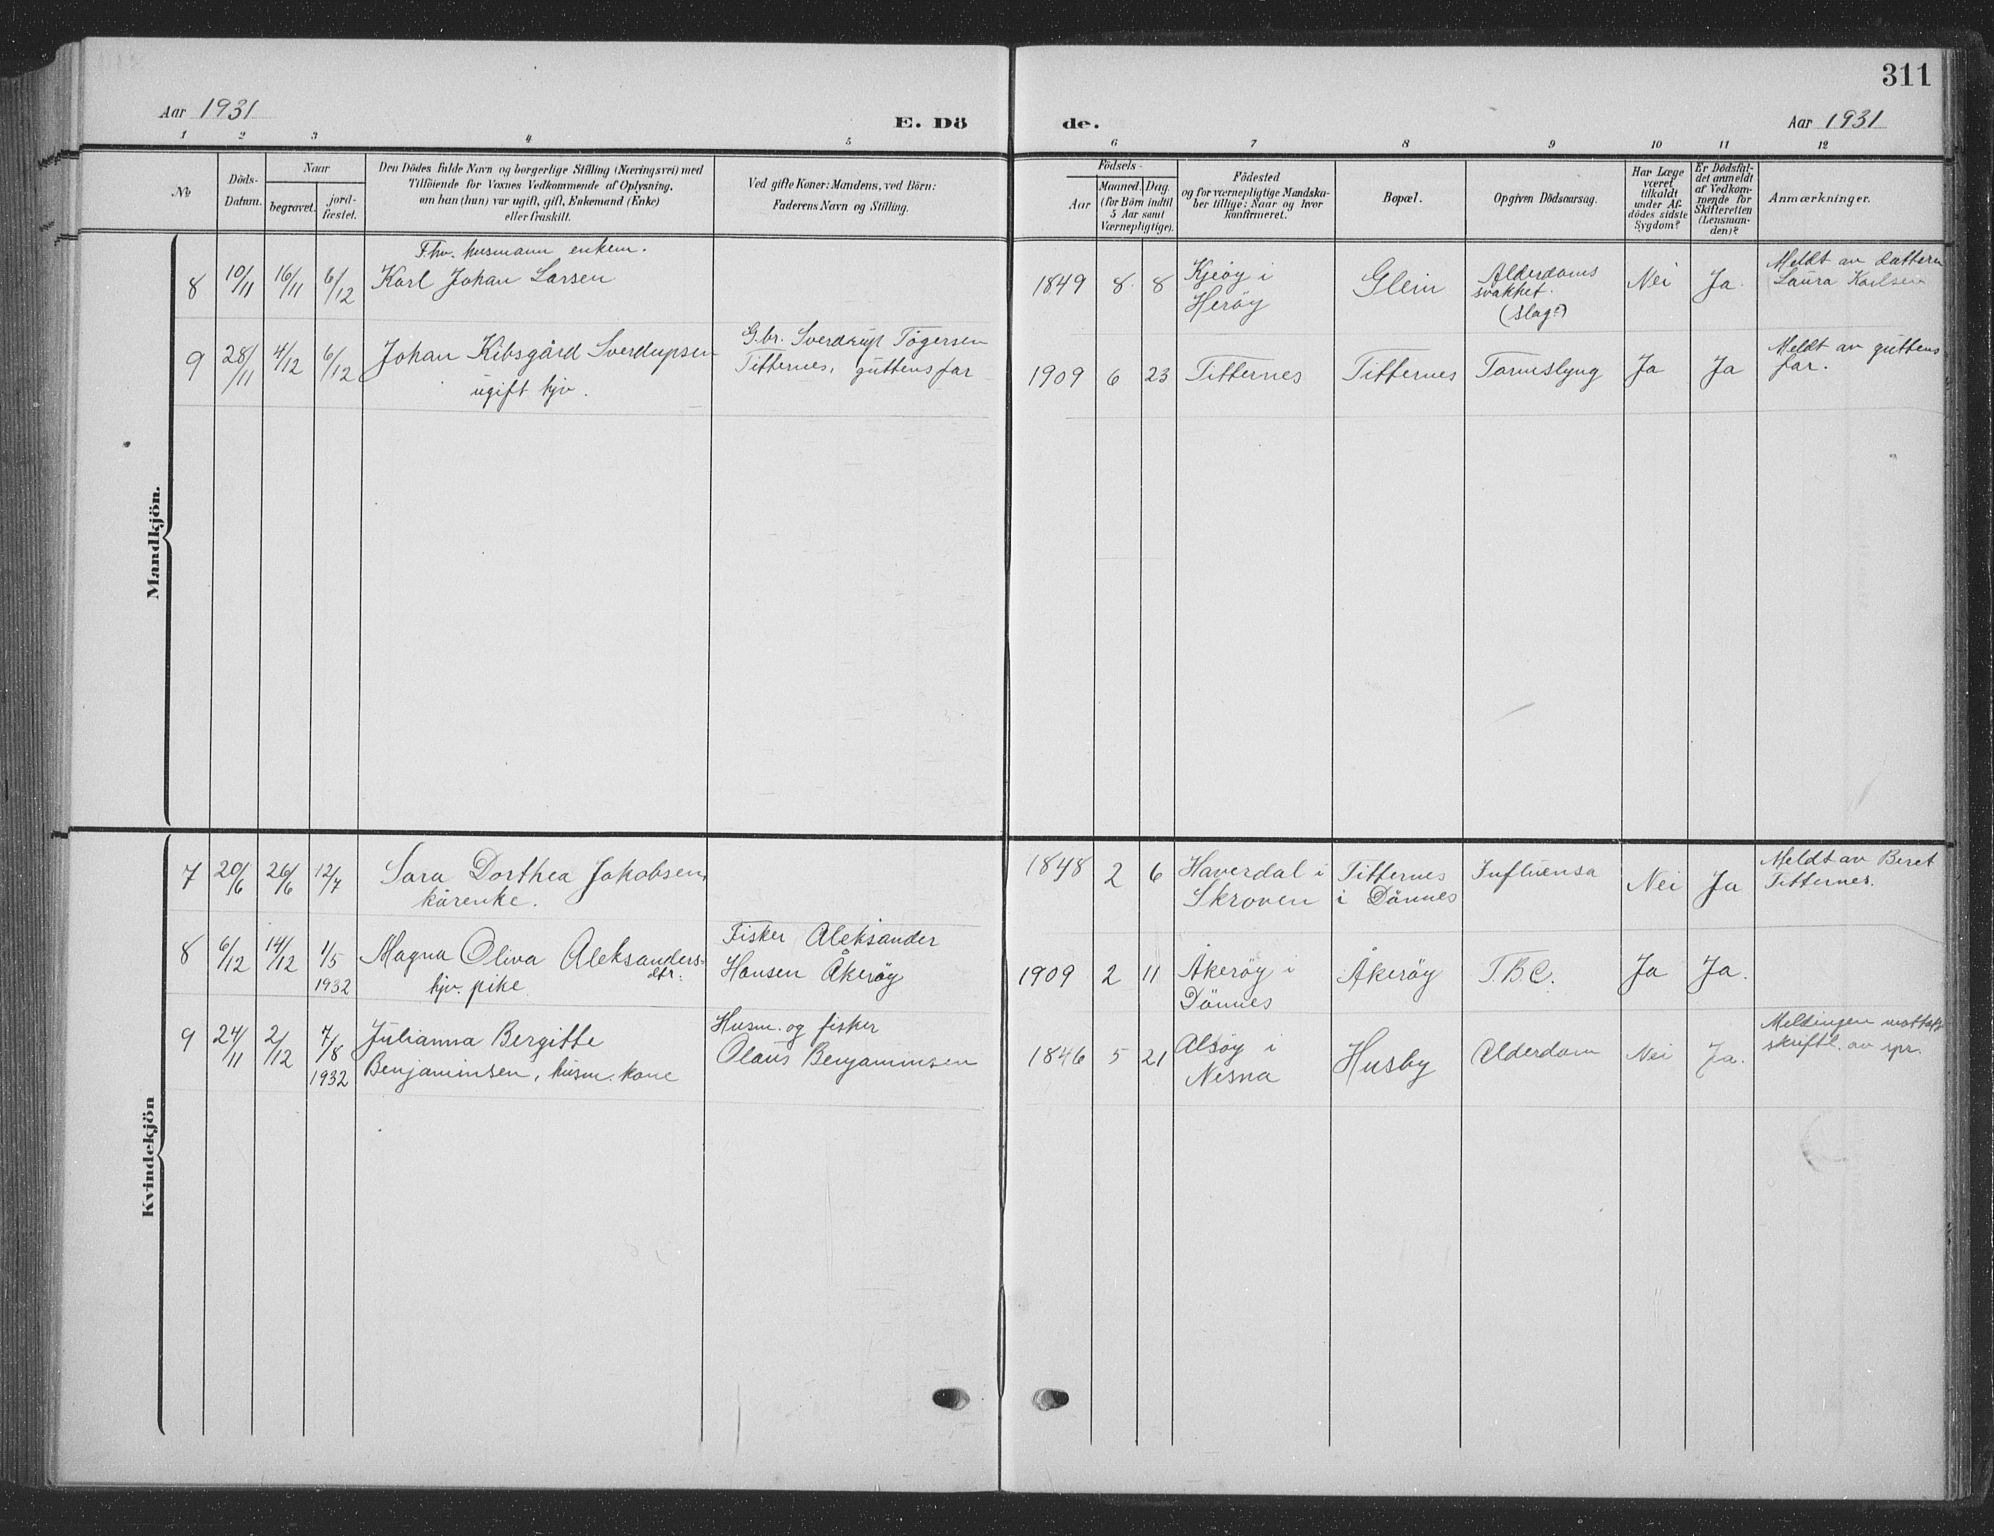 311
Aar 1931
E. Dö
de.
Aar 1931
1 2 3 4 5 6 7 8 9 10 11 12
No
Döds-
Datum.
Naar
begravet.
jord-
fæstet.
Den Dödes fulde Navn og borgerlige Stilling (Næringsvei) med
Tilföiende for Voxnes Vedkommende af Oplysning,
om han (hun) var ugift, gift, Enkemand (Enke)
eller fraskilt.
Ved gifte Koner: Mandens, ved Börn:
Faderens Navn og Stilling.
Födsels-
Aar
Maaned. Dag.
(for Börn indtil
5 Aar samt
Værnepligtige).
Födested
og for værnepligtige Mandska-
ber tillige: Naar og hvor
konfirmeret.
Bopæl.
Opgiven Dödsaarsag.
Har Læge
været
tilkaldt
under Af-
dödes sidste
Sygdom?
Er Dödsfal-
det anmeldt
af Vedkom-
mende for
Skifteretten
(Lensman-
den)?
Anmærkninger.
Mandkjön.
8 10/11 16/11 6/12
Fhv. husmann enkem.
Karl Johan Larsen
1849 8 8
Kjeøy i
Herøy
Glein
Alderdoms
svakhet.
(slag?)
Nei
Ja.
Meldt av dattern
Laura Karlsen
9 28/11 4/12 6/12
Johan Kibsgård Sverdrupsen
ugift hjv.
G.br. Sverdrup Tøgersen
Titternes, guttens far
1909 6 23
Titternes
Titternes
Tarmslyng
Ja
Ja
Meldt av guttens
far.
Kvindekjön
7 20/6 26/6 12/7
Sara Dorthea Jakobsen,
kårenke.
1848 2 6
Haverdal i
Skroven
Titternes
i Dønnes
Influensa
Nei
Ja
Meldt av Beret
Titternes.
8 6/12 14/12 1/5
1932
Magna Oliva Aleksanders-
dtr.
hjv. pike
Fisker Aleksander
Hansen Åkerøy
1909 2 11
Åkerøy i
Dønnes
Åkerøy
T.B.C.
Ja
Ja.
9 24/11 2/12 7/8
1932
Julianna Bergitte
Benjaminsen, husm. kone
Husm. og fisker
Olaus Benjaminsen
1846 5 21
Alsøy i
Nesna
Husby
Alderdom
Nei
Ja.
Meldingen mottatt
skriftl. av spr.